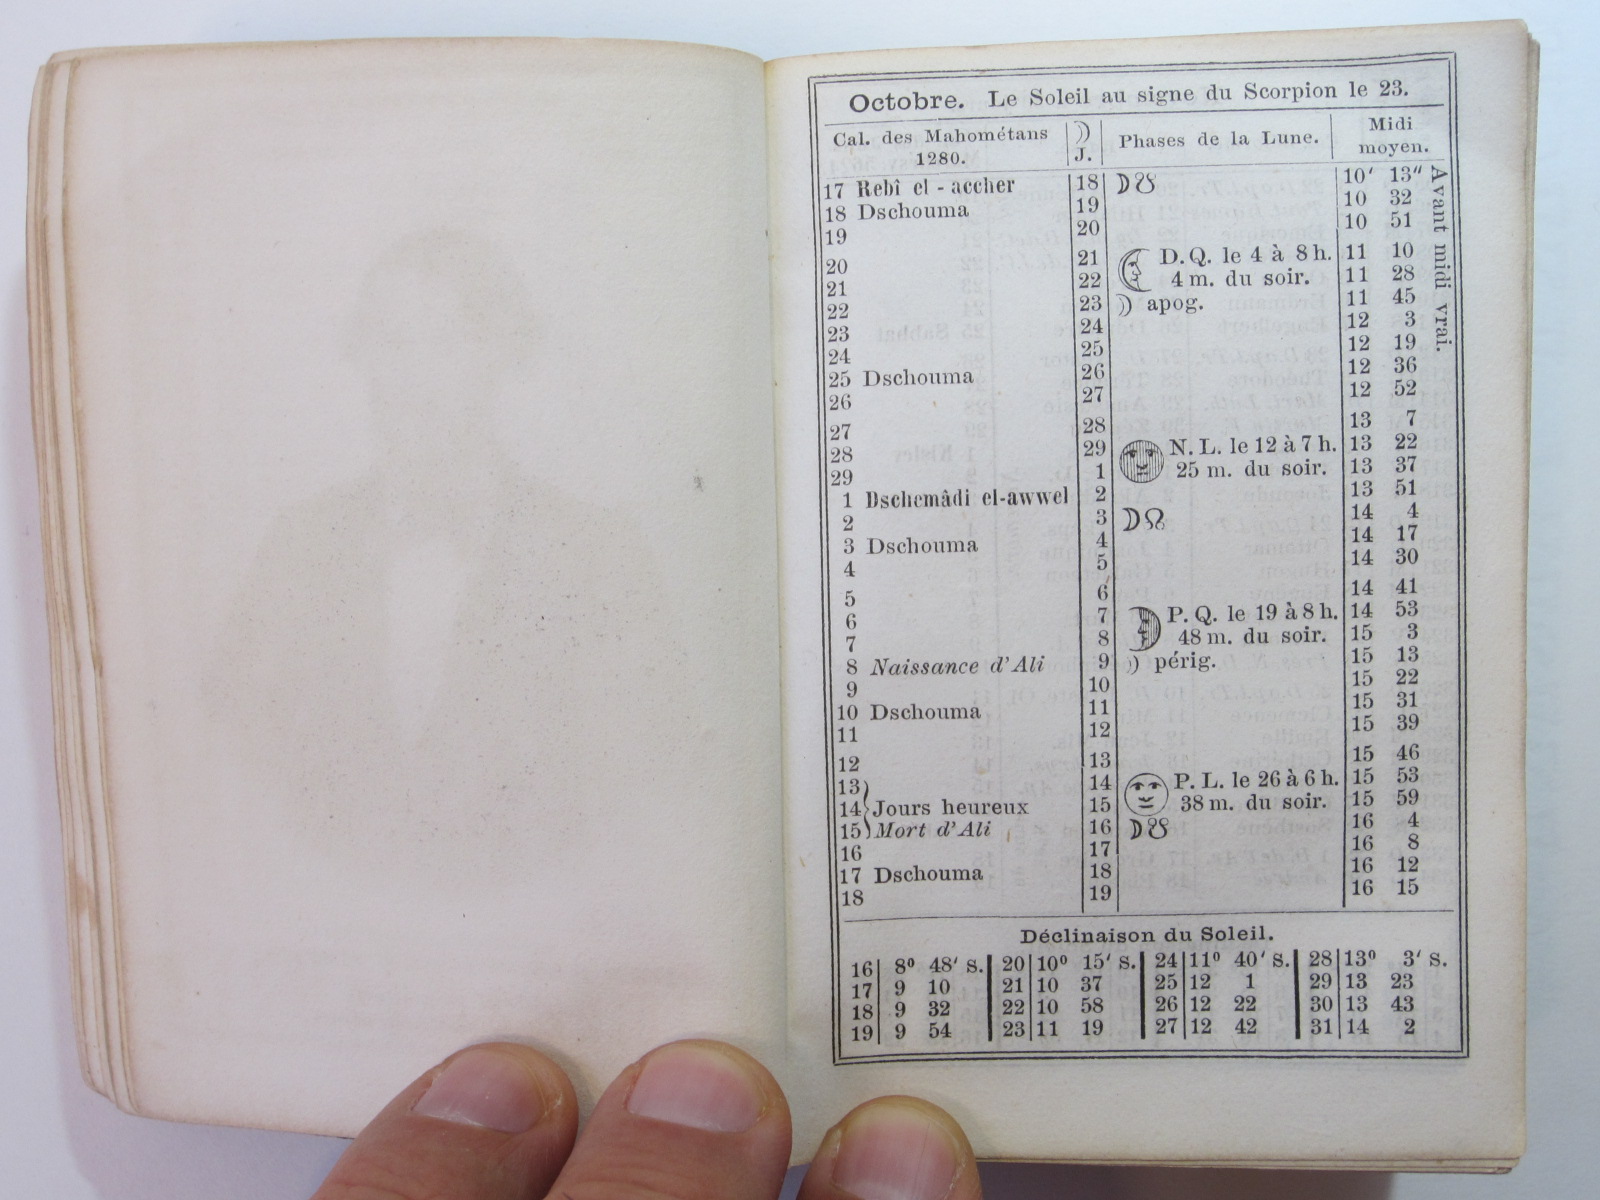 Octobre. Le Soleil au signe du Scorpion le 23.
Cal. des Mahométans 1280. ☽ J. Phases de la Lune. Midi moyen.
17 Rebî el-accher 18 ☽☋ 10′ 13″
18 Dschouma 19 10 32
19 20 10 51
20 21 D.Q. le 4 à 8 h. 11 10
21 22 4 m. du soir. 11 28
22 23 ☽ apog. 11 45
23 24 12 3
24 25 12 19
25 Dschouma 26 12 36
26 27 12 52
27 28 13 7
28 29 N. L. le 12 à 7 h. 13 22
29 1 25 m. du soir. 13 37
1 Dschemâdi el-awwel 2 13 51
2 3 ☽☊ 14 4
3 Dschouma 4 14 17
4 5 14 30
5 6 14 41
6 7 P. Q. le 19 à 8 h. 14 53
7 8 48 m. du soir. 15 3
8 Naissance d'Ali 9 ☽ périg. 15 13
9 10 15 22
10 Dschouma 11 15 31
11 12 15 39
12 13 15 46
13 14 P. L. le 26 à 6 h. 15 53
14 Jours heureux 15 38 m. du soir. 15 59
15 Mort d'Ali 16 ☽☋ 16 4
16 17 16 8
17 Dschouma 18 16 12
18 19 16 15
Avant midi vrai.
Déclinaison du Soleil.
16 8° 48′ S. 20 10° 15′ S. 24 11° 40′ S. 28 13° 3′ S.
17 9 10 21 10 37 25 12 1 29 13 23
18 9 32 22 10 58 26 12 22 30 13 43
19 9 54 23 11 19 27 12 42 31 14 2